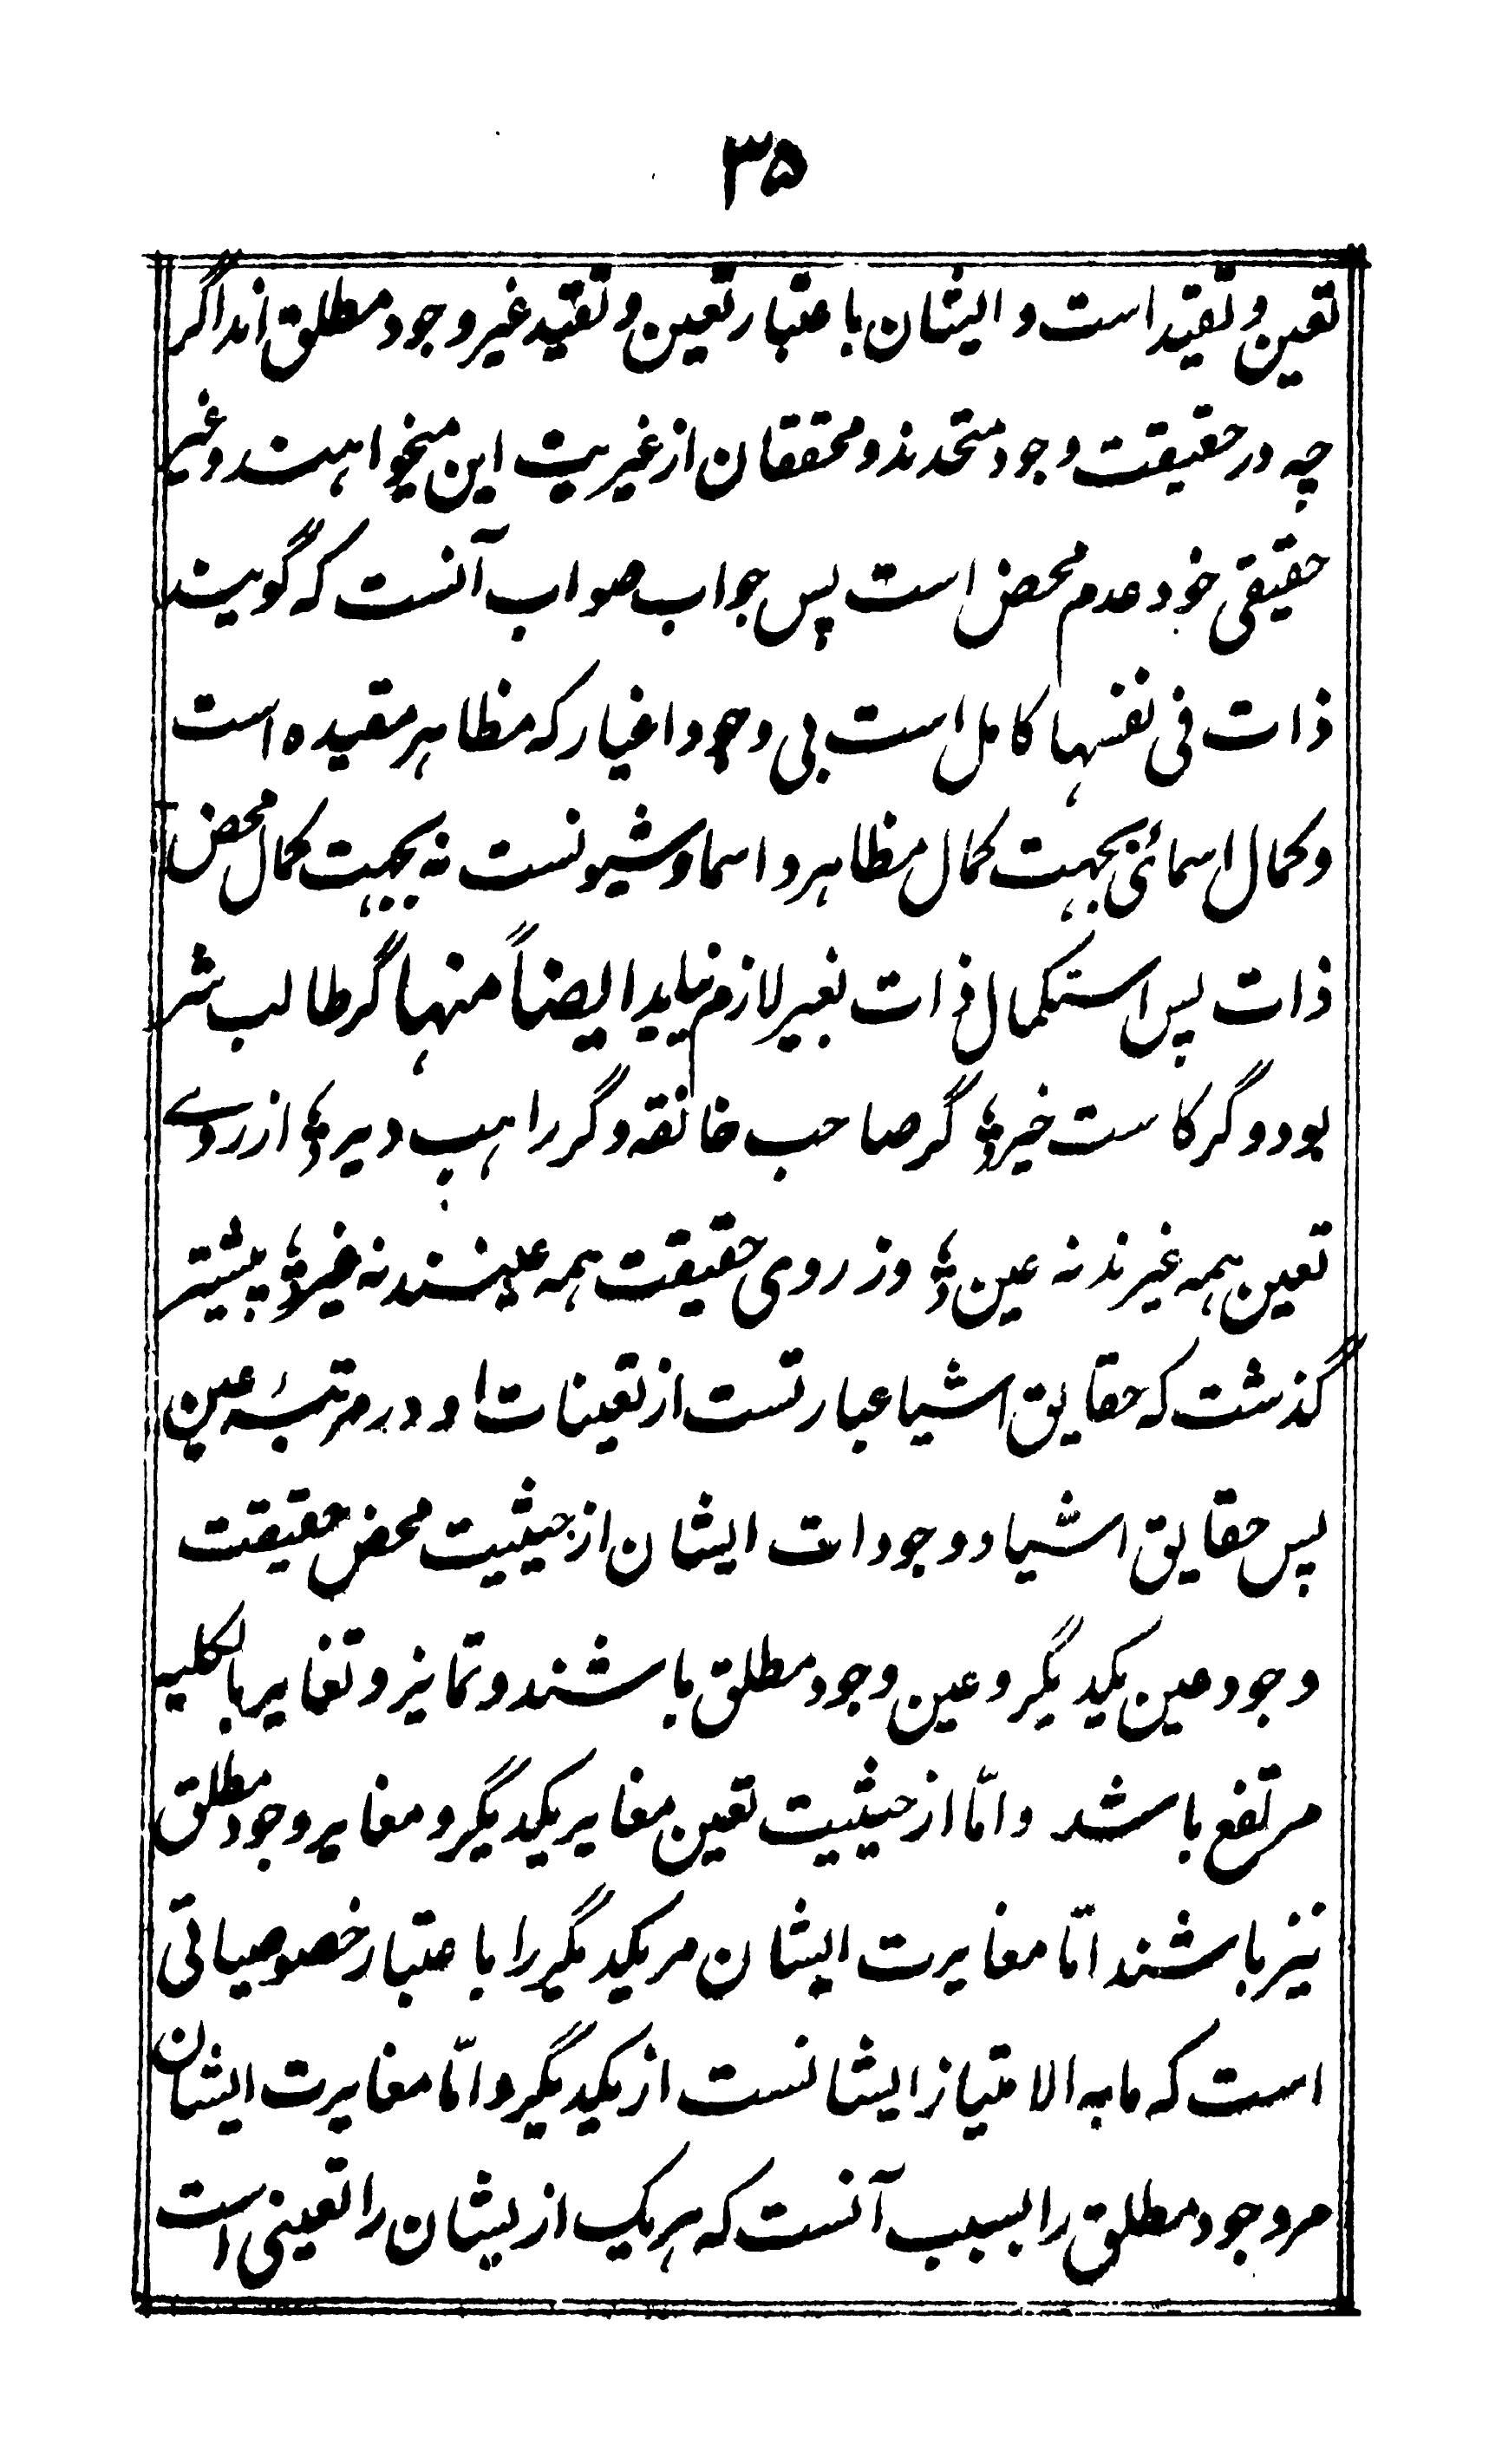 ۳۵
تعین و تقید است و ایشان باعتبار تعین و تقید غیر وجود مطلق اند اگر
چه در حقیقت وجود متحدند و محققان از غیریت این میخواهند و غیر
حقیقی خود عدم محض است پس جواب صواب آنست که گویند
ذات فی نفسها کامل است بی وجود اغیار که مظاهر مقیده است
و کمال اسمائی بجهت کمال مظاهر و اسما و شیونست نه بجهت کمال محض
ذات پس استکمال ذات بغیر لازم نیاید ایضاً منها گر طالب شر
بود و گر کاست خیر؛ گر صاحب خانقه و گر راهب دیر؛ از روے
تعین همه غیرند نه عین؛ وز روی حقیقت همه عینند نه غیر؛ پیشتر
گذشت که حقایق اشیا عبارتست از تعینات او در مرتبهٔ عین
پس حقایق اشیا و وجودات ایشان از حیثیت محض حقیقت
وجود عین یکدیگر و عین وجود مطلق باشند و تمایز و تغایر بالکلیه
مرتفع باشد و امّا از حیثیت تعین مغایر یکدیگر و مغایر وجود مطلق
نیز باشند امّا مغایرت ایشان مر یکدیگر را باعتبار خصوصیاتی
است که مابه الامتیاز ایشانست از یکدیگر و امّا مغایرت ایشان
مر وجود مطلق را بسبب آنست که هر یک از یشان را تعینی است